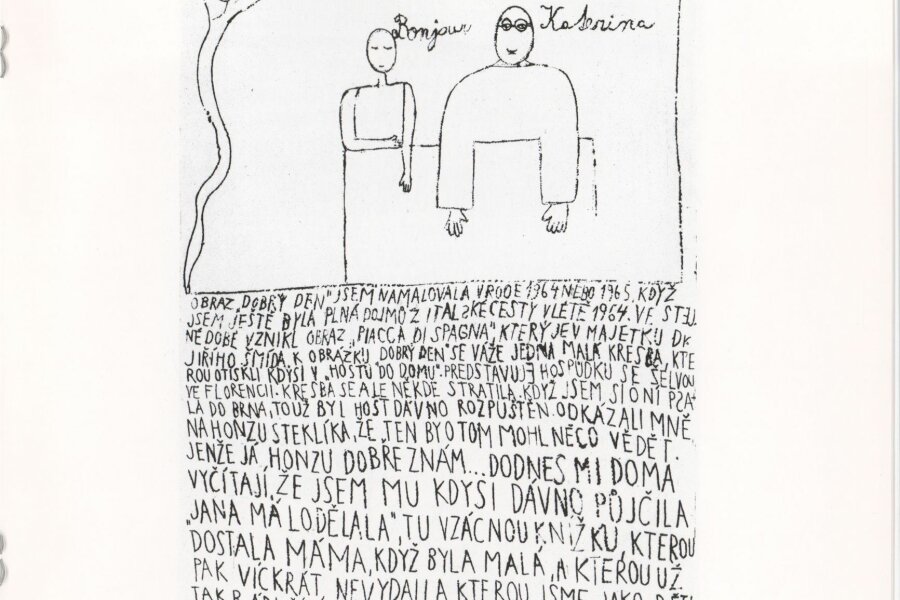 Bonjour Katerina
OBRAZ „DOBRÝ DEN" JSEM NAMALOVALA V ROCE 1964 NEBO 1965, KDYŽ
JSEM JEŠTĚ BYLA PLNÁ DOJMŮ Z ITALSKÉ CESTY V LÉTĚ 1964. VE STEJ
NÉ DOBĚ VZNIKL OBRAZ „PIACCA DI SPAGNA", KTERÝ JE V MAJETKU DR
JIŘÍHO ŠMÍDA. K OBRÁZKU „DOBRÝ DEN" SE VÁŽE JEDNA MALÁ KRESBA, KTE
ROU OTISKLI KDYSI V „HOSTU DO DOMU". PŘEDSTAVUJE HOSPŮDKU SE ŽELVOU
VE FLORENCII. KRESBA SE ALE NĚKDE STRATILA. KDYŽ JSEM SI O NI PSA
LA DO BRNA, TO UŽ BYL HOST DÁVNO ROZPUŠTĚN. ODKÁZALI MNĚ
NA HONZU STEKLÍKA, ŽE TEN BY O TOM MOHL NĚCO VĚDĚT.
JENŽE JÁ HONZU DOBŘE ZNÁM... DODNES MI DOMA
VYČÍTAJÍ, ŽE JSEM MU KDYSI DÁVNO PŮJČILA
„JANA MÁLODĚLALA", TU VZÁCNOU KNÍŽKU, KTEROU
DOSTALA MÁMA, KDYŽ BYLA MALÁ, A KTEROU UŽ
PAK VÍCKRÁT NEVYDALI A KTEROU JSME JAKO DĚTI